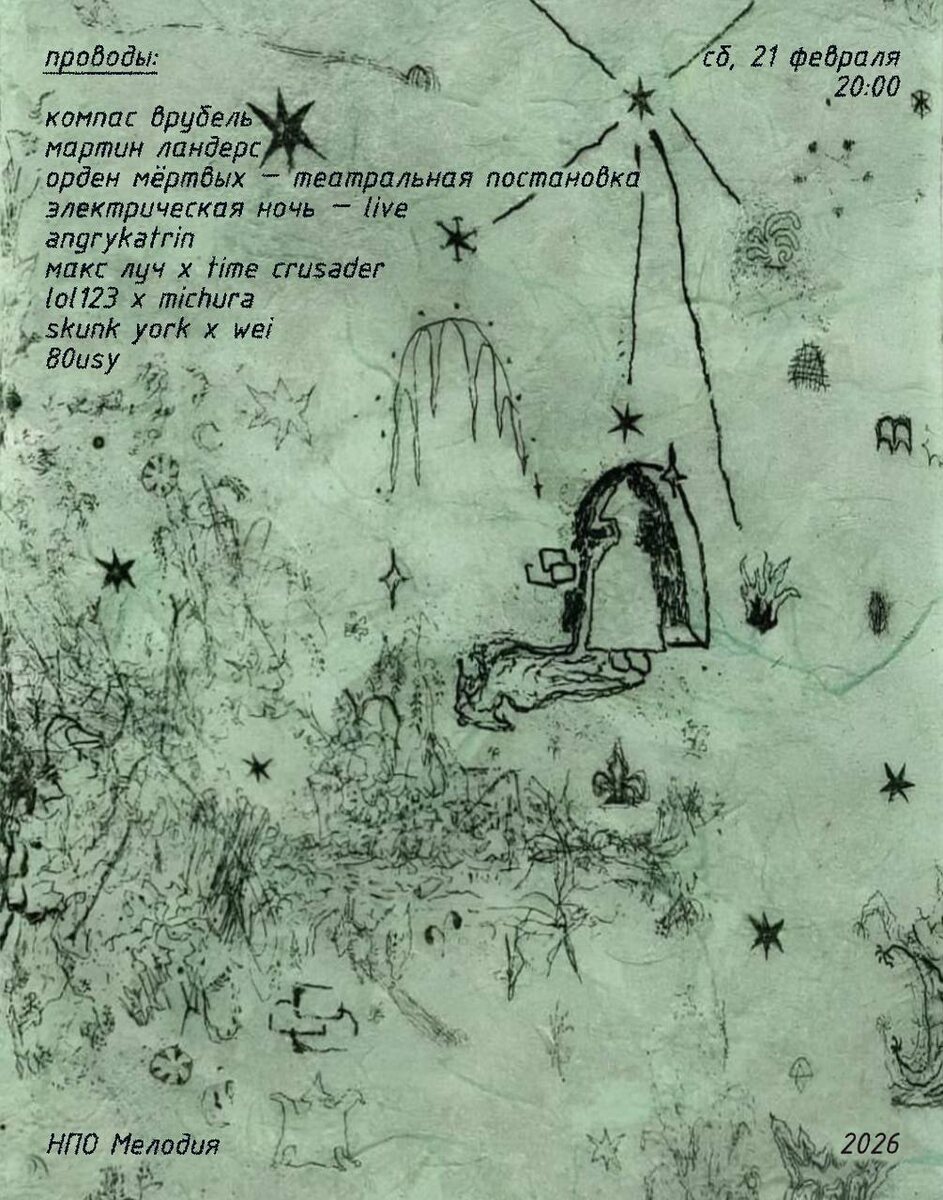 проводы:
сб, 21 февраля
20:00
компас врубель
мартин ландерс
орден мёртвых — театральная постановка
электрическая ночь — live
angrykatrin
макс луч x time crusader
lol123 x michura
skunk york x wei
80usy
НПО Мелодия
2026